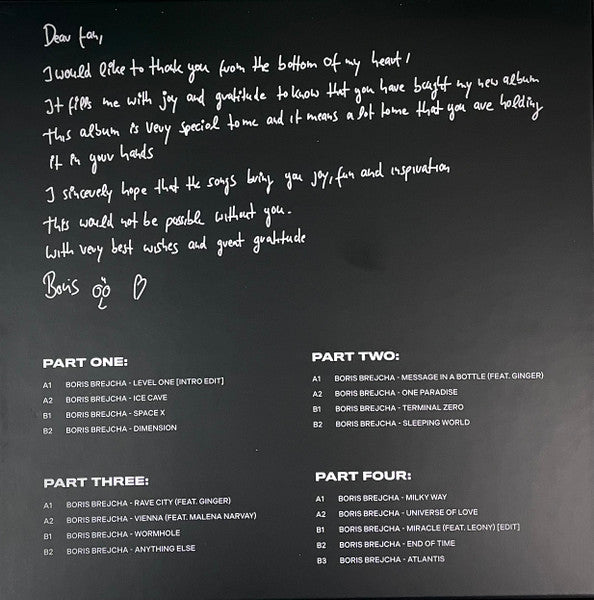 Dear fan,
I would like to thank you from the bottom of my heart!
It fills me with joy and gratitude to know that you have bought my new album
This album is very special to me and it means a lot to me that you are holding
it in your hands
I sincerely hope that the songs bring you joy, fun and inspiration
This would not be possible without you.
With very best wishes and great gratitude
Boris
PART ONE:
A1 BORIS BREJCHA - LEVEL ONE [INTRO EDIT]
A2 BORIS BREJCHA - ICE CAVE
B1 BORIS BREJCHA - SPACE X
B2 BORIS BREJCHA - DIMENSION
PART TWO:
A1 BORIS BREJCHA - MESSAGE IN A BOTTLE (FEAT. GINGER)
A2 BORIS BREJCHA - ONE PARADISE
B1 BORIS BREJCHA - TERMINAL ZERO
B2 BORIS BREJCHA - SLEEPING WORLD
PART THREE:
A1 BORIS BREJCHA - RAVE CITY (FEAT. GINGER)
A2 BORIS BREJCHA - VIENNA (FEAT. MALENA NARVAY)
B1 BORIS BREJCHA - WORMHOLE
B2 BORIS BREJCHA - ANYTHING ELSE
PART FOUR:
A1 BORIS BREJCHA - MILKY WAY
A2 BORIS BREJCHA - UNIVERSE OF LOVE
B1 BORIS BREJCHA - MIRACLE (FEAT. LEONY) [EDIT]
B2 BORIS BREJCHA - END OF TIME
B3 BORIS BREJCHA - ATLANTIS